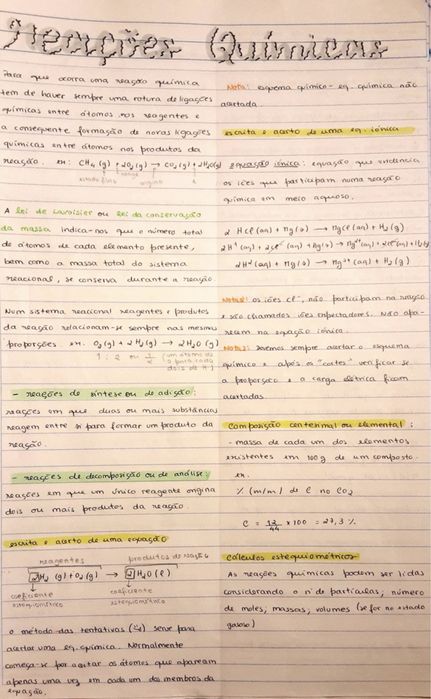 Reações Químicas
Para que ocorra uma reação química
tem de haver sempre uma rotura de ligações
químicas entre átomos nos reagentes e
a consequente formação de novas ligações
químicas entre átomos nos produtos da
reação. ex: CH4(g) + 2O2(g) → CO2(g) + 2H2O(g)
estado físico
origina
A lei de Lavoisier ou lei da conservação
da massa indica-nos que o número total
de átomos de cada elemento presente,
bem como a massa total do sistema
reacional, se conserva durante a reação.
Num sistema reacional reagentes e produtos
da reação relacionam-se sempre nas mesmas
proporções ex: O2(g) + 2H2(g) → 2H2O(g)
1 : 2 ou 1/2 (um átomo de
O para cada
dois de H)
- reações de síntese ou de adição:
reações em que duas ou mais substâncias
reagem entre si para formar um produto da
reação.
- reações de decomposição ou de análise:
reações em que um único reagente origina
dois ou mais produtos da reação.
escrita e acerto de uma equação
reagentes produtos da reação
2H2(g) + O2(g) → 2H2O(l)
coeficiente estequiométrico
coeficiente estequiométrico
O método das tentativas serve para
acertar uma eq. química. Normalmente
começa-se por acertar os átomos que aparecem
apenas uma vez em cada um dos membros da
equação.
Nota: esquema químico - eq. química não
acertada.
escrita e acerto de uma eq. iónica
equação iónica: equação que evidencia
os iões que participam numa reação
química em meio aquoso.
2 HCl(aq) + Mg(s) → MgCl2(aq) + H2(g)
2H+(aq) + 2Cl-(aq) + Mg(s) → Mg2+(aq) + 2Cl-(aq) + H2(g)
2H+(aq) + Mg(s) → Mg2+(aq) + H2(g)
Nota1: os iões Cl-, não participam na reação
e são chamados iões espectadores. Não apa-
recem na equação iónica.
Nota2: devemos sempre acertar o esquema
químico e após os "cortes" verificar se
a proporção e a carga elétrica ficam
acertadas.
Composição centesimal ou elemental:
- massa de cada um dos elementos
existentes em 100g de um composto.
ex:
% (m/m) de C no CO2
C = 12/44 x 100 = 27,3 %
Cálculos estequiométricos
As reações químicas podem ser lidas
considerando o nº de partículas, número
de moles, massas, volumes (se for no estado
gasoso)